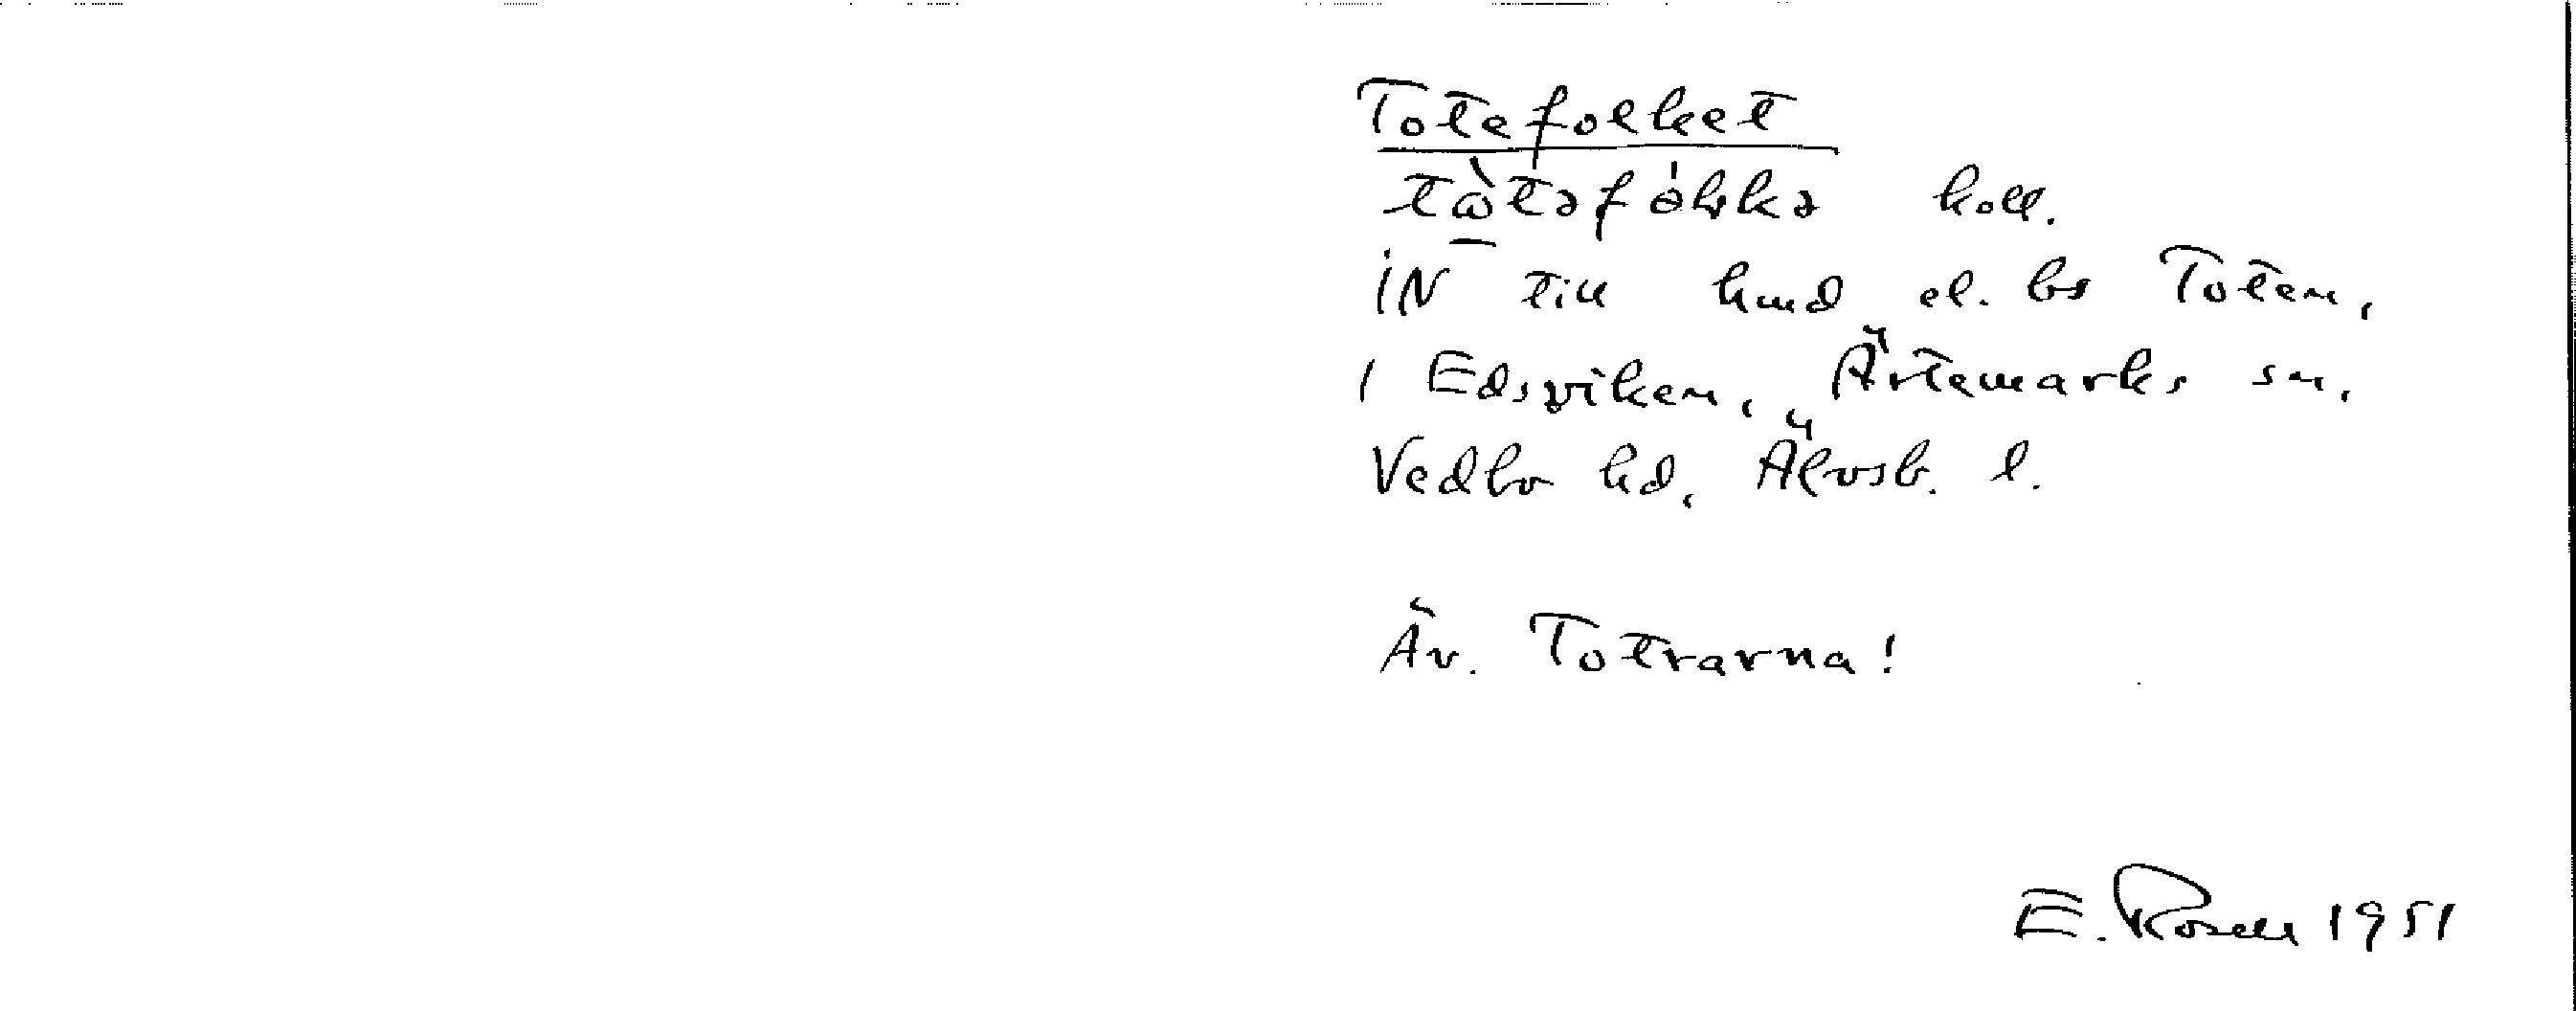 Totefolket
tὼtəfólkə koll.
IN till hmd el. bs Toten,
i Edsviken, Ärtemarks sn,
Vedbo hd, Älvsb. l.
Äv. Totrarna!
E. Rosell 1951